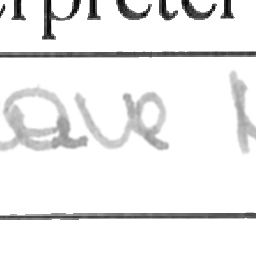 erpreter
ave